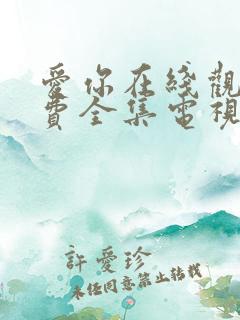 愛你在綫觀
費全集電視
許愛珍
未经同意禁止转载